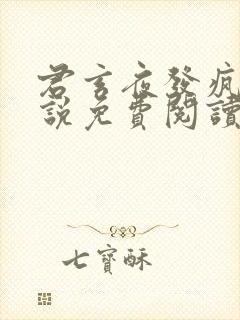 君言夜發瘋
說免費閱讀
七寶酥